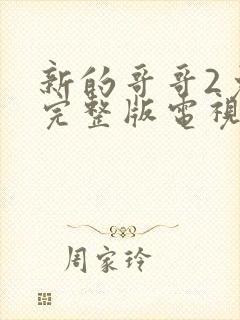 新的哥哥2
完整版電視
周家玲